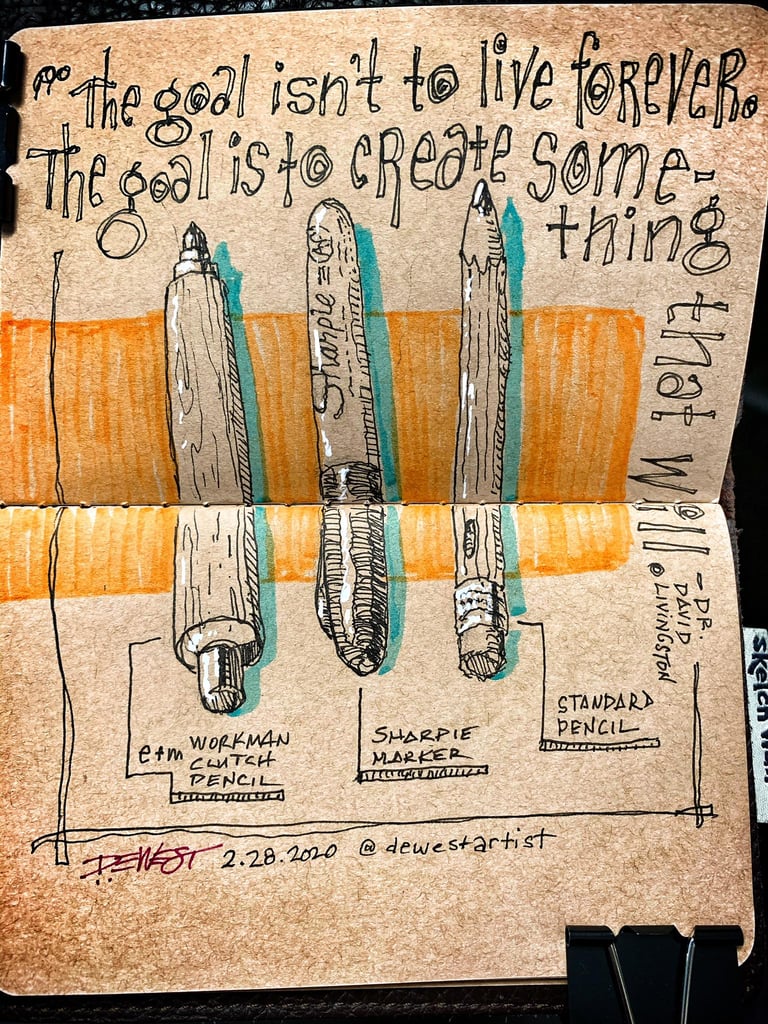 "The goal isn't to live forever.
The goal is to create some-
thing
that will
- DR.
DAVID
@LIVINGSTON
Sharpie
e+m WORKMAN
CLUTCH
PENCIL
SHARPIE
MARKER
STANDARD
PENCIL
DEWEST 2.28.2020 @dewestartist